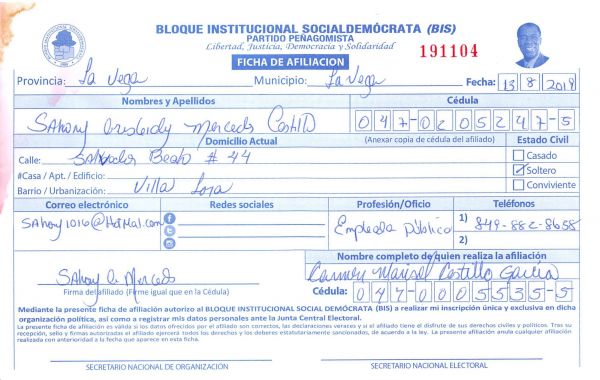 BLOQUE INSTITUCIONAL SOCIALDEMÓCRATA (BIS)
PARTIDO PEÑAGOMISTA
Libertad, Justicia, Democracia y Solidaridad
FICHA DE AFILIACION
191104
Provincia: La Vega Municipio: La Vega Fecha: 13 8 2018
Nombres y Apellidos Cédula
Sahony Mercedes 047-0205247-5
Domicilio Actual (Anexar copia de cédula del afiliado) Estado Civil
Calle: Salvador Beato # 44 Casado
#Casa / Apt. / Edificio: Soltero
Barrio / Urbanización: Villa Lora Conviviente
Correo electrónico Redes sociales Profesión/Oficio Teléfonos
Sahony1016@Hotmail.com Empleada Público 1) 849-882-8658
2)
Nombre completo de quien realiza la afiliación
Sahony Mercedes Carmen Castillo García
Firma del afiliado (Firme igual que en la Cédula) Cédula: 047-0005535-5
Mediante la presente ficha de afiliación autorizo al BLOQUE INSTITUCIONAL SOCIAL DEMÓCRATA (BIS) a realizar mi inscripción única y exclusiva en dicha
organización política, así como a registrar mis datos personales ante la Junta Central Electoral.
La presente ficha de afiliación es válida si los datos ofrecidos por el afiliado son correctos, las declaraciones veraces y si el afiliado tiene el disfrute de sus derechos civiles y políticos. Tras su
recepción, sello y firmas autorizadas el afiliado ejercerá todos los derechos y los deberes estatutariamente sancionados, de acuerdo a la ley. La presente afiliación anula cualquier afiliación
realizada con anterioridad a la fecha que aparece en esta ficha.
SECRETARIO NACIONAL DE ORGANIZACIÓN SECRETARIO NACIONAL ELECTORAL